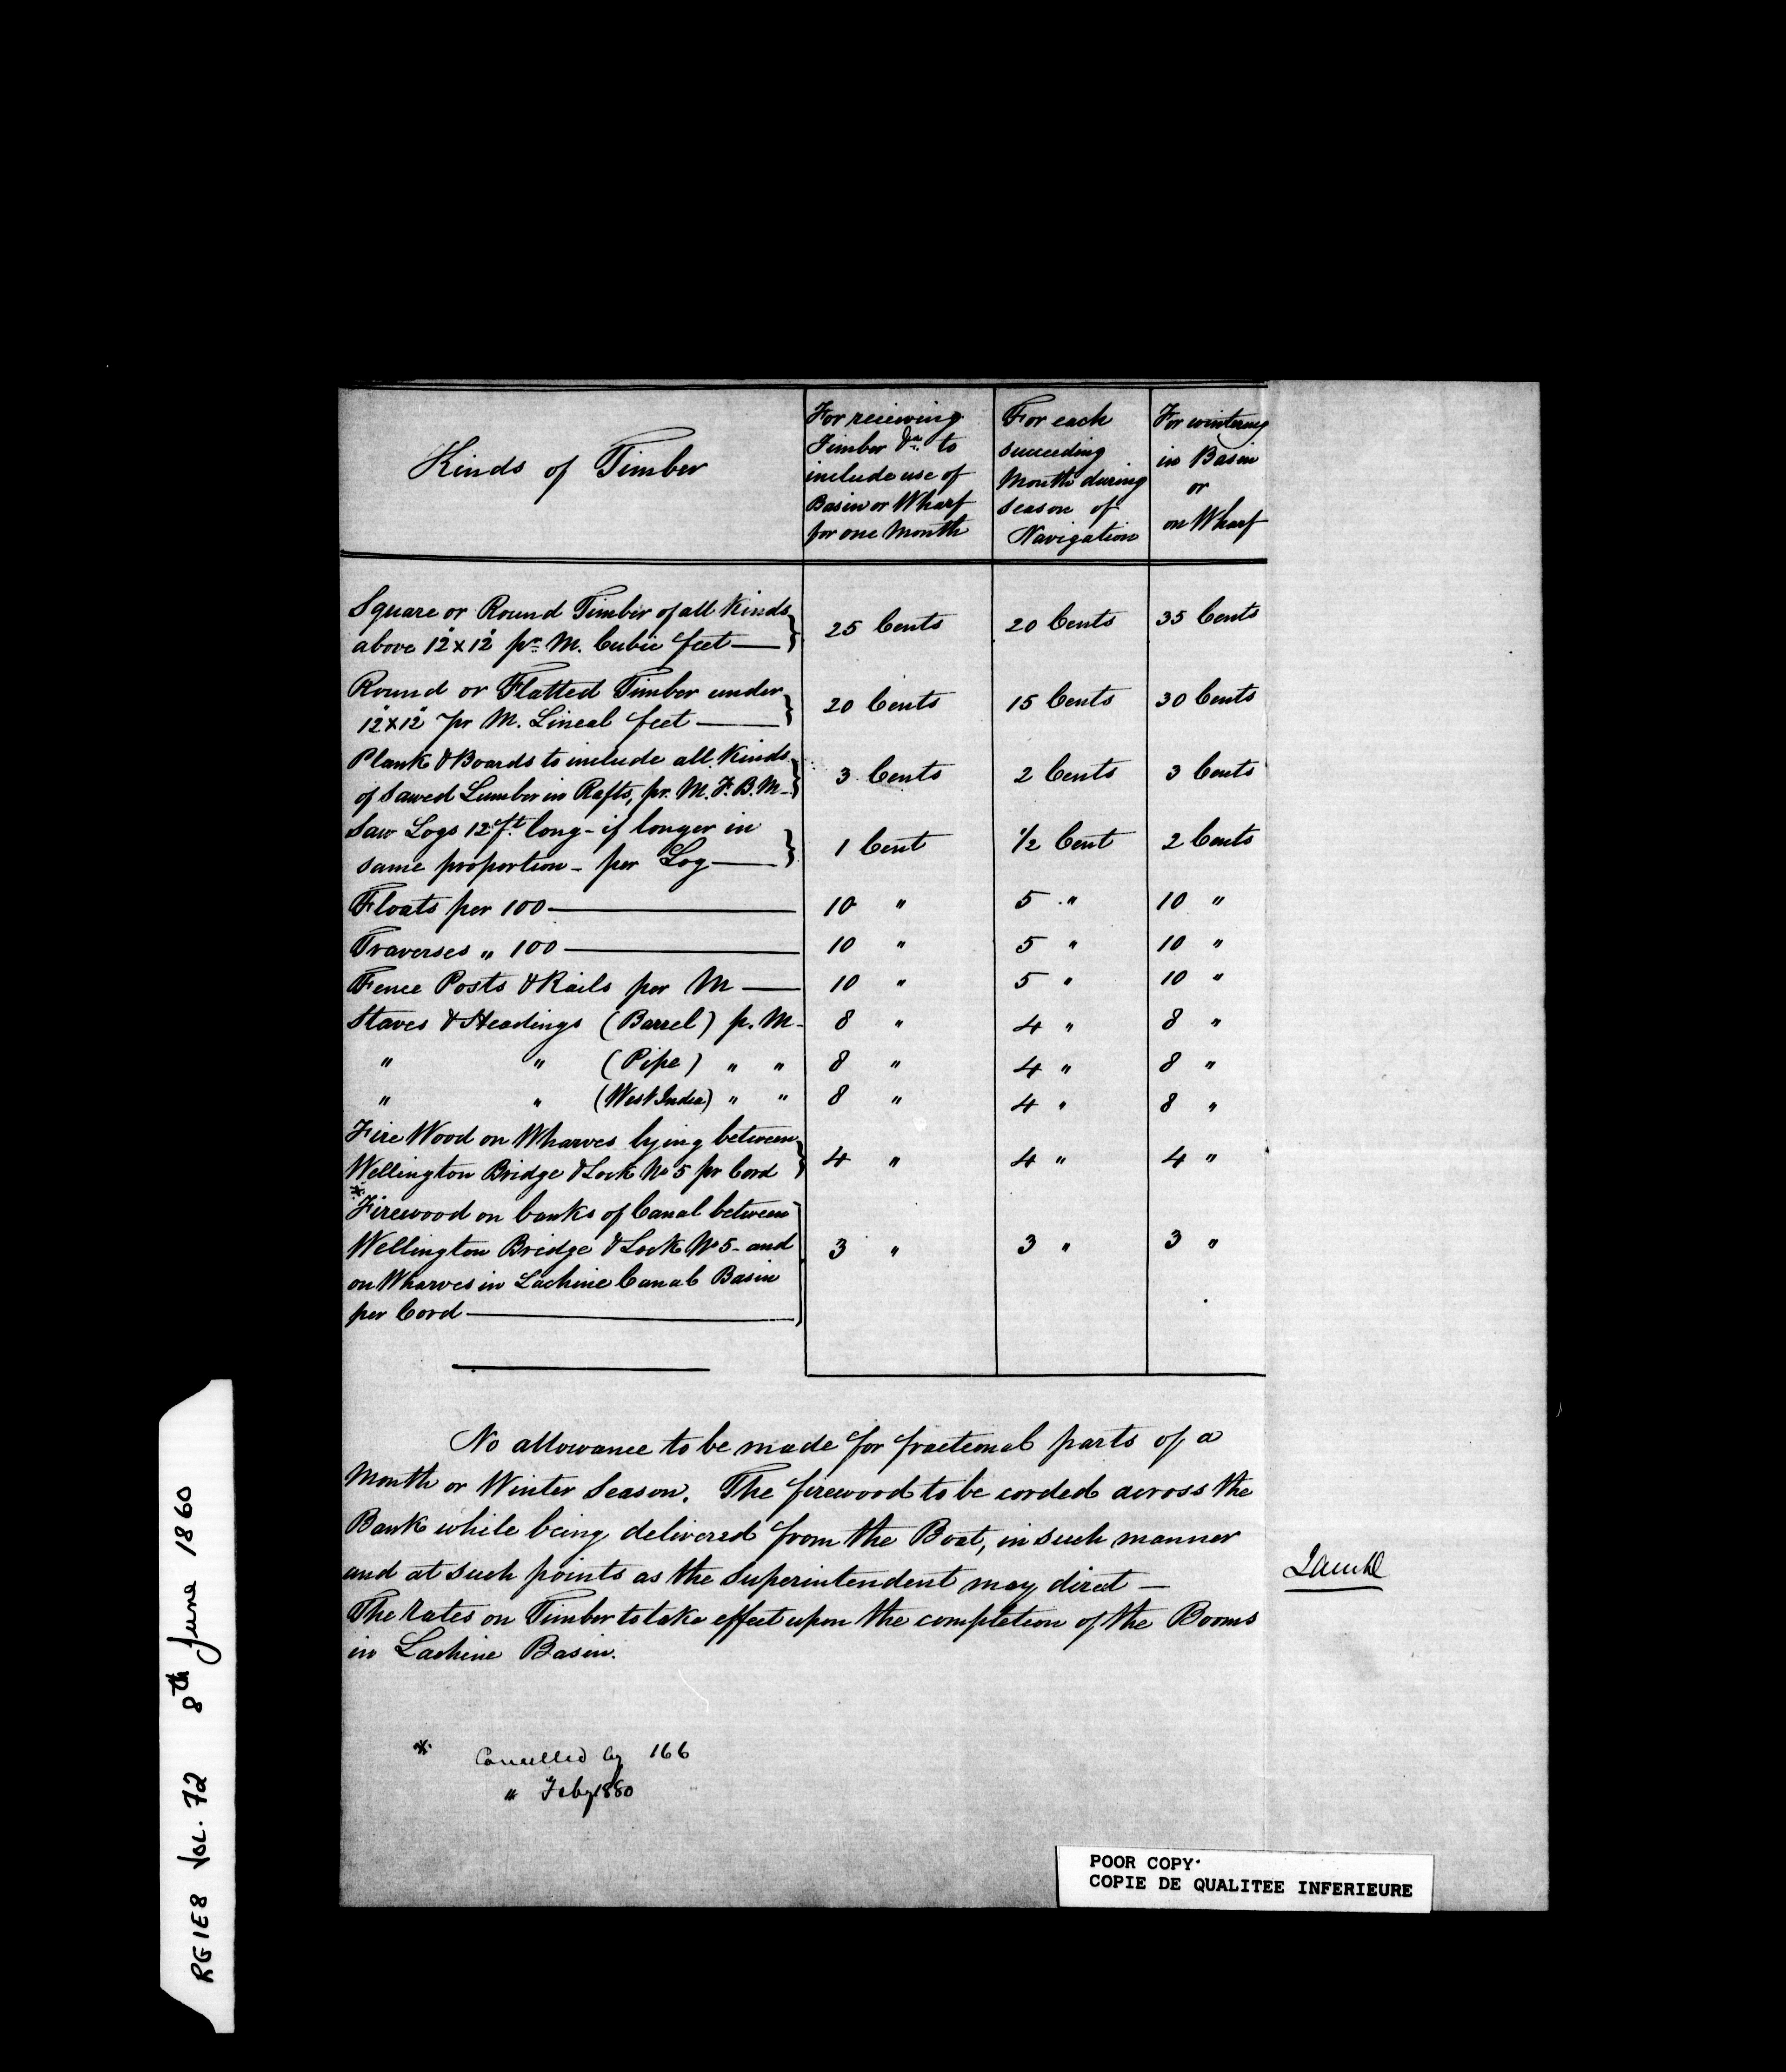 Kinds of Timber
For receiving
Timber &c. to
include use of
Basin or Wharf
for one Month
For each
succeeding
Month during
Season of
Navigation
For wintering
in Basin
or
on Wharf
Square or Round Timber of all Kinds
above 12"x12" pr. M. Cubic feet — 25 Cents 20 Cents 35 Cents
Round or Flatted Timber under
12"x12" pr M. Lineal feet — 20 Cents 15 Cents 30 Cents
Plank & Boards to include all Kinds
of Sawed Lumber in Rafts, pr. M. F. B. M — 3 Cents 2 Cents 3 Cents
Saw Logs 12 ft. long - if longer in
same proportion - per Log — 1 Cent 1/2 Cent 2 Cents
Floats per 100 — 10 " 5 " 10 "
Traverses " 100 — 10 " 5 " 10 "
Fence Posts & Rails per M — 10 " 5 " 10 "
Staves & Headings (Barrel) p. M - 8 " 4 " 8 "
" " (Pipe) " " 8 " 4 " 8 "
" " (West India) " " 8 " 4 " 8 "
Fire Wood on Wharves lying between
Wellington Bridge & Lock No 5 pr Cord 4 " 4 " 4 "
* Firewood on banks of Canal between
Wellington Bridge & Lock No 5 - and 3 " 3 " 3 "
on Wharves in Lachine Canal Basin
per Cord —
No allowance to be made for fractional parts of a
Month or Winter Season. The firewood to be corded across the
Bank while being delivered from the Boat, in such manner
and at such points as the Superintendent may direct —
The rates on Timber to take effect upon the completion of the Booms
in Lachine Basin.
* Cancelled by 166
" Feby 1880
RG1E8 VOL. 72 8th June 1860
POOR COPY
COPIE DE QUALITEE INFERIEURE